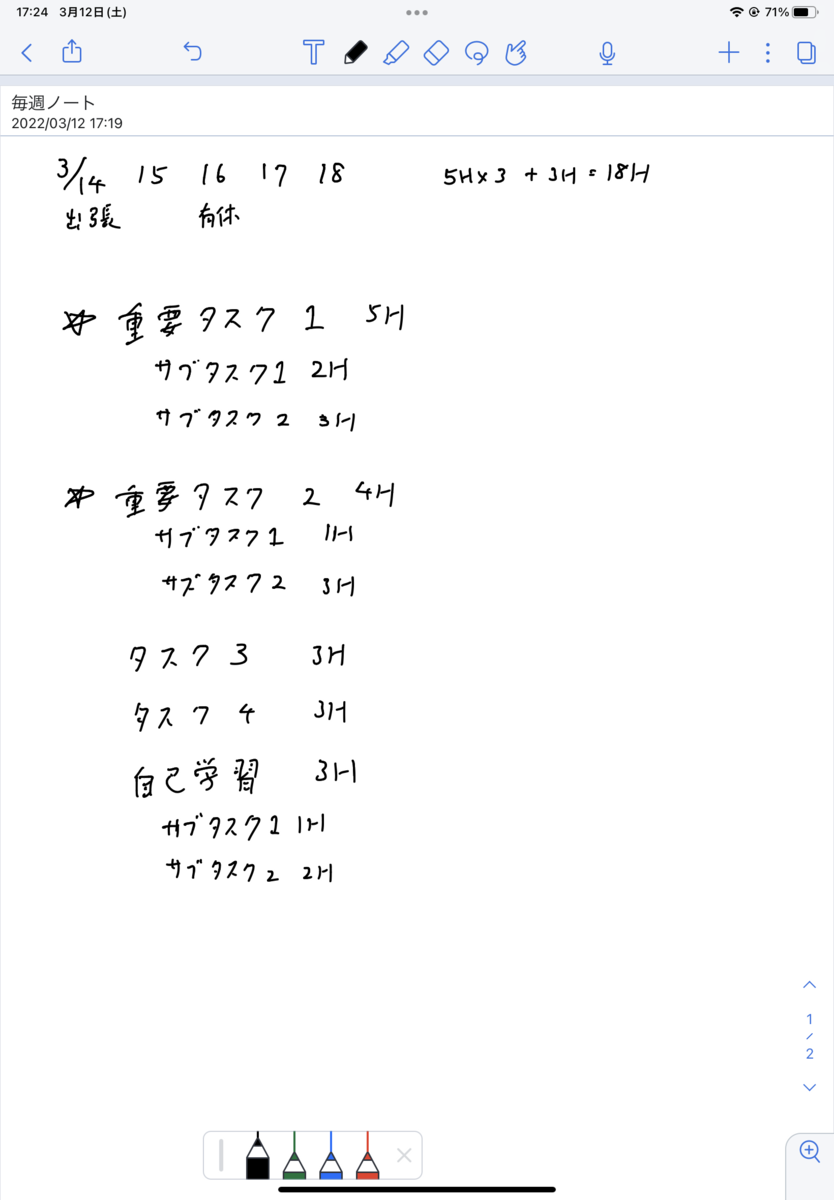 17:24 3月12日(土) 71%
毎週ノート
2022/03/12 17:19
3/14 15 16 17 18 5H×3 + 3H = 18H
出張 有休
☆ 重要タスク 1 5H
サブタスク1 2H
サブタスク2 3H
☆ 重要タスク 2 4H
サブタスク1 1H
サブタスク2 3H
タスク 3 3H
タスク 4 3H
自己学習 3H
サブタスク1 1H
サブタスク2 2H
1
/
2